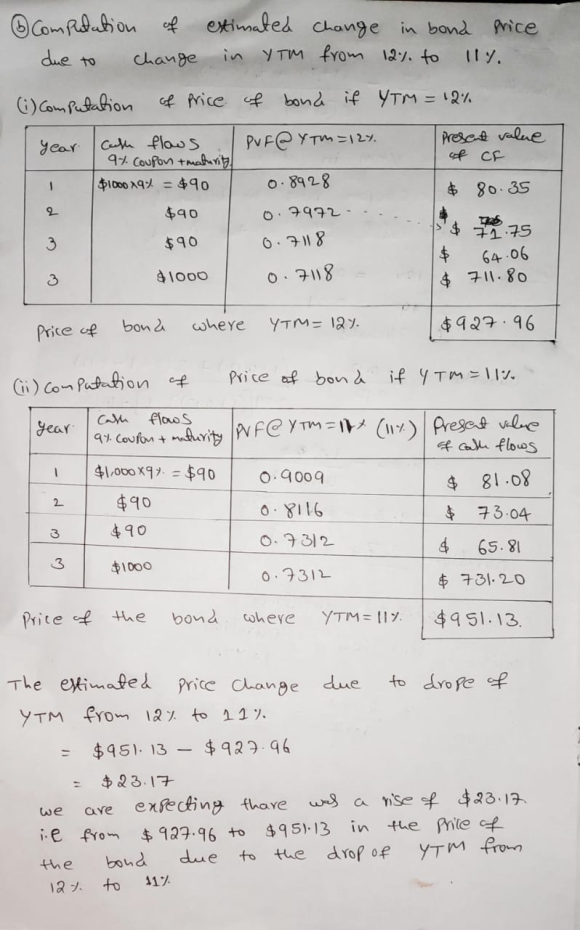 (b) Computation of estimated change in bond price
due to change in YTM from 12% to 11%.
(i) Computation of Price of bond if YTM = 12%
Year Cash flows PVF@ YTM=12% Present value
9% Coupon + maturity of CF
1 $1000x9% = $90 0.8928 $ 80.35
2 $90 0.7972 $ 71.75
3 $90 0.7118 $ 64.06
3 $1000 0.7118 $ 711.80
Price of bond where YTM= 12% $927.96
(ii) Computation of Price of bond if YTM = 11%
Year Cash flows PVF@YTM= (11%) Present value
9% Coupon + maturity of cash flows
1 $1,000x9% = $90 0.9009 $ 81.08
2 $90 0.8116 $ 73.04
3 $90 0.7312 $ 65.81
3 $1000 0.7312 $ 731.20
Price of the bond where YTM=11% $951.13.
The estimated price change due to drope of
YTM from 12% to 11%.
= $951.13 - $927.96
= $23.17
we are expecting thare was a rise of $23.17
i.e from $927.96 to $951.13 in the price of
the bond due to the drop of YTM from
12% to 11%